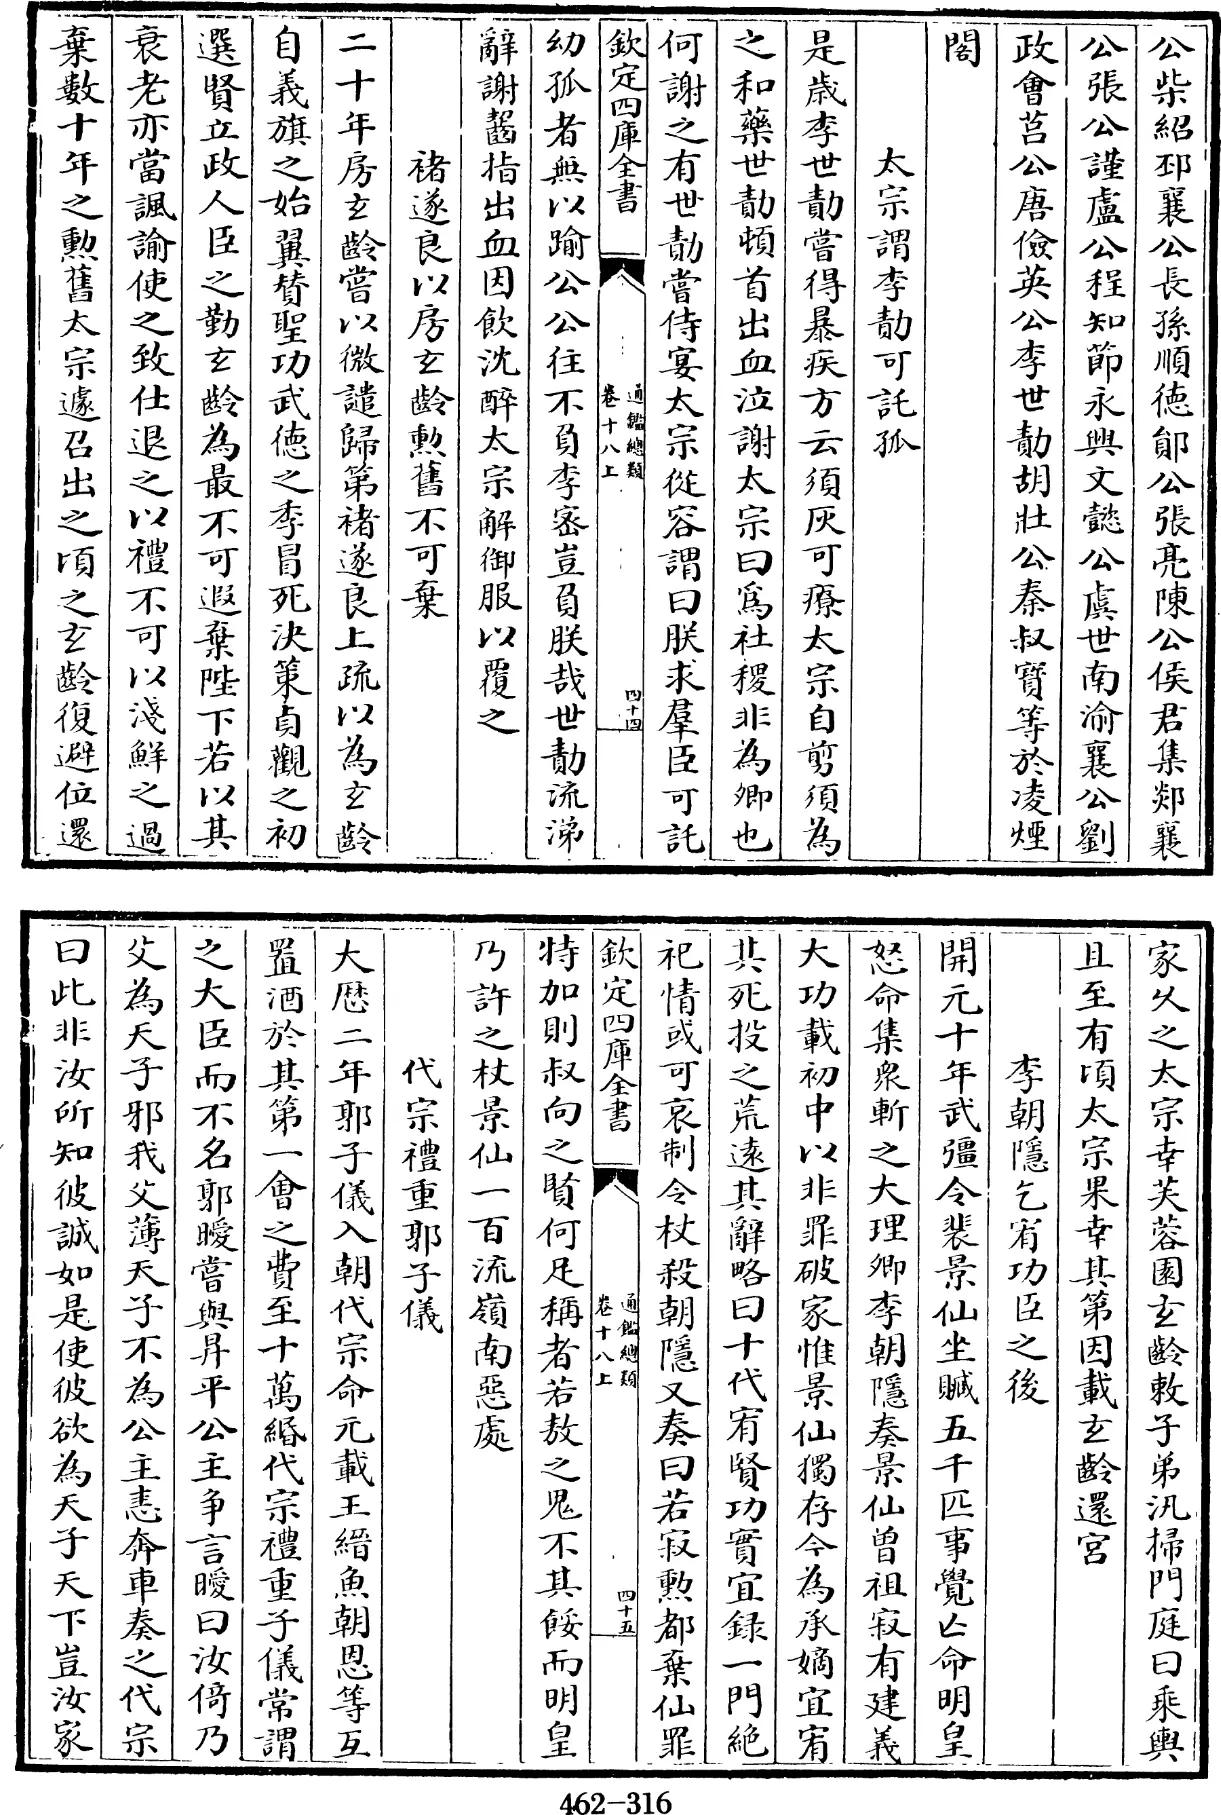 公柴紹邳襄公長孫順德鄖公張亮陳公侯君集郯襄
公張公謹盧公程知節永興文懿公虞世南渝襄公劉
政會莒公唐儉英公李世勣胡壯公秦叔寶等於凌煙
閣
太宗謂李勣可託孤
是歲李世勣嘗得暴疾方云須灰可療太宗自剪須為
之和藥世勣頓首出血泣謝太宗曰爲社稷非為卿也
何謝之有世勣嘗侍宴太宗從容謂曰朕求羣臣可託
欽定四庫全書
通鑑總類
卷十八上
四十四
幼孤者無以踰公公往不負李密豈負朕哉世勣流涕
辭謝齧指出血因飲沈醉太宗解御服以覆之
褚遂良以房玄齡勲舊不可棄
二十年房玄齡嘗以微譴歸第褚遂良上疏以為玄齡
自義旗之始翼賛聖功武德之季冒死決策貞觀之初
選賢立政人臣之勤玄齡為最不可遐棄陛下若以其
衰老亦當諷諭使之致仕退之以禮不可以淺鮮之過
棄數十年之勲舊太宗遽召出之頃之玄齡復避位還
家久之太宗幸芙蓉園玄齡敕子弟汛掃門庭曰乘輿
且至有頃太宗果幸其第因載玄齡還宮
李朝隱乞宥功臣之後
開元十年武彊令裴景仙坐贓五千匹事覺亡命明皇
怒命集衆斬之大理卿李朝隱奏景仙曾祖寂有建義
大功載初中以非罪破家惟景仙獨存今為承嫡宜宥
其死投之荒遠其辭略曰十代宥賢功實宜錄一門絶
祀情或可哀制令杖殺朝隱又奏曰若寂勲都棄仙罪
欽定四庫全書
通鑑總類
卷十八上
四十五
特加則叔向之賢何足稱者若敖之鬼不其餒而明皇
乃許之杖景仙一百流嶺南惡處
代宗禮重郭子儀
大厯二年郭子儀入朝代宗命元載王縉魚朝恩等互
置酒於其第一會之費至十萬緡代宗禮重子儀常謂
之大臣而不名郭曖嘗與昇平公主争言曖曰汝倚乃
父為天子邪我父薄天子不為公主恚奔車奏之代宗
曰此非汝所知彼誠如是使彼欲為天子天下豈汝家
462-316